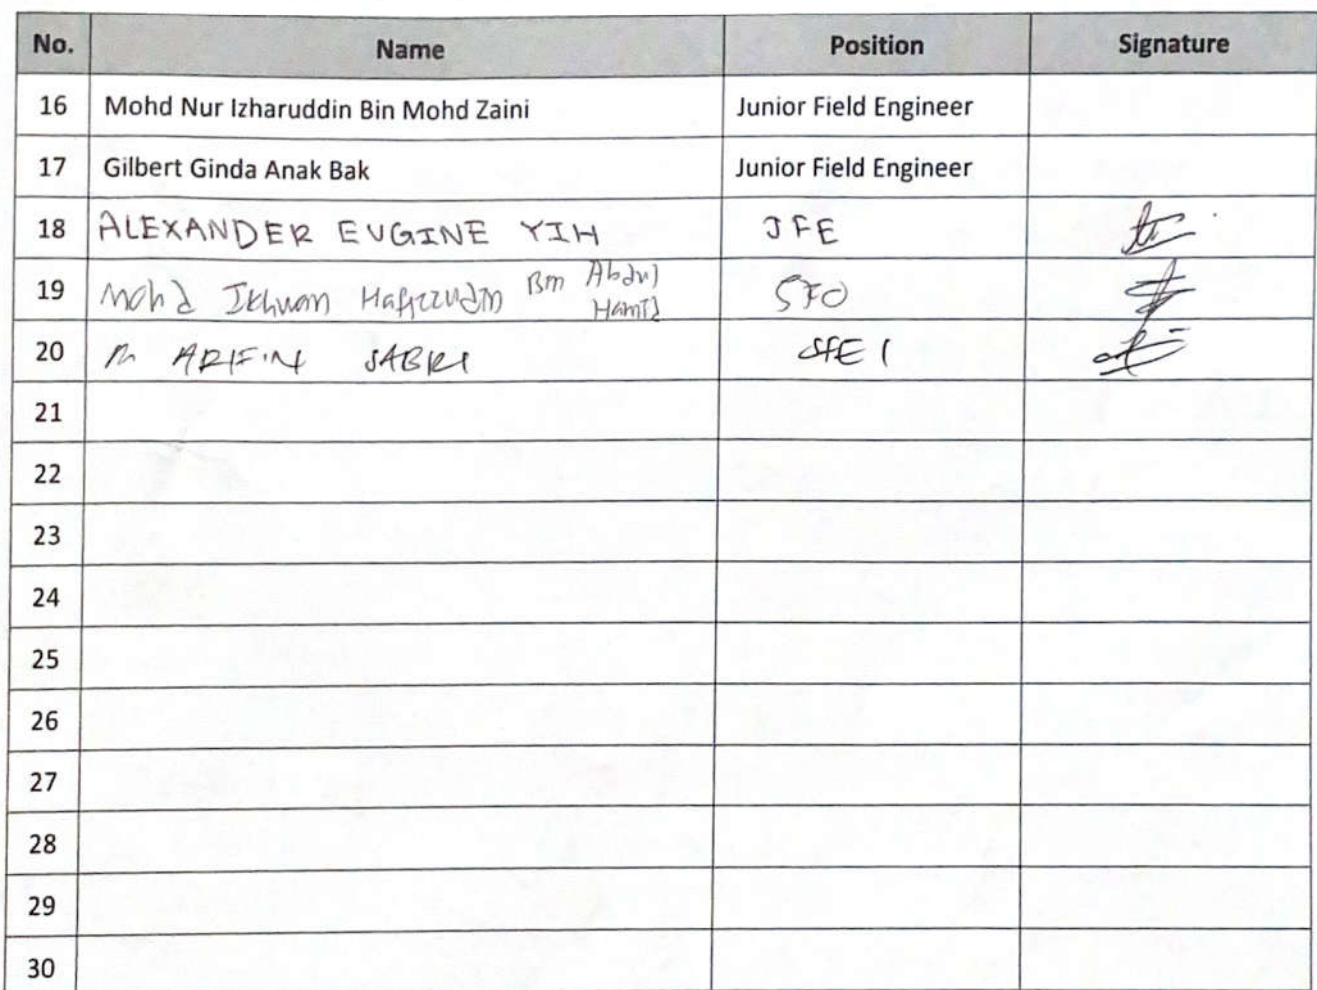 No. Name Position Signature
16 Mohd Nur Izharuddin Bin Mohd Zaini Junior Field Engineer
17 Gilbert Ginda Anak Bak Junior Field Engineer
18 ALEXANDER EUGINE YIH JFE
19 Mohd Ikhwan Hafizzudin Bin Abdul Hamid SFO
20 ARIFIN SABRI SFE 1
21
22
23
24
25
26
27
28
29
30